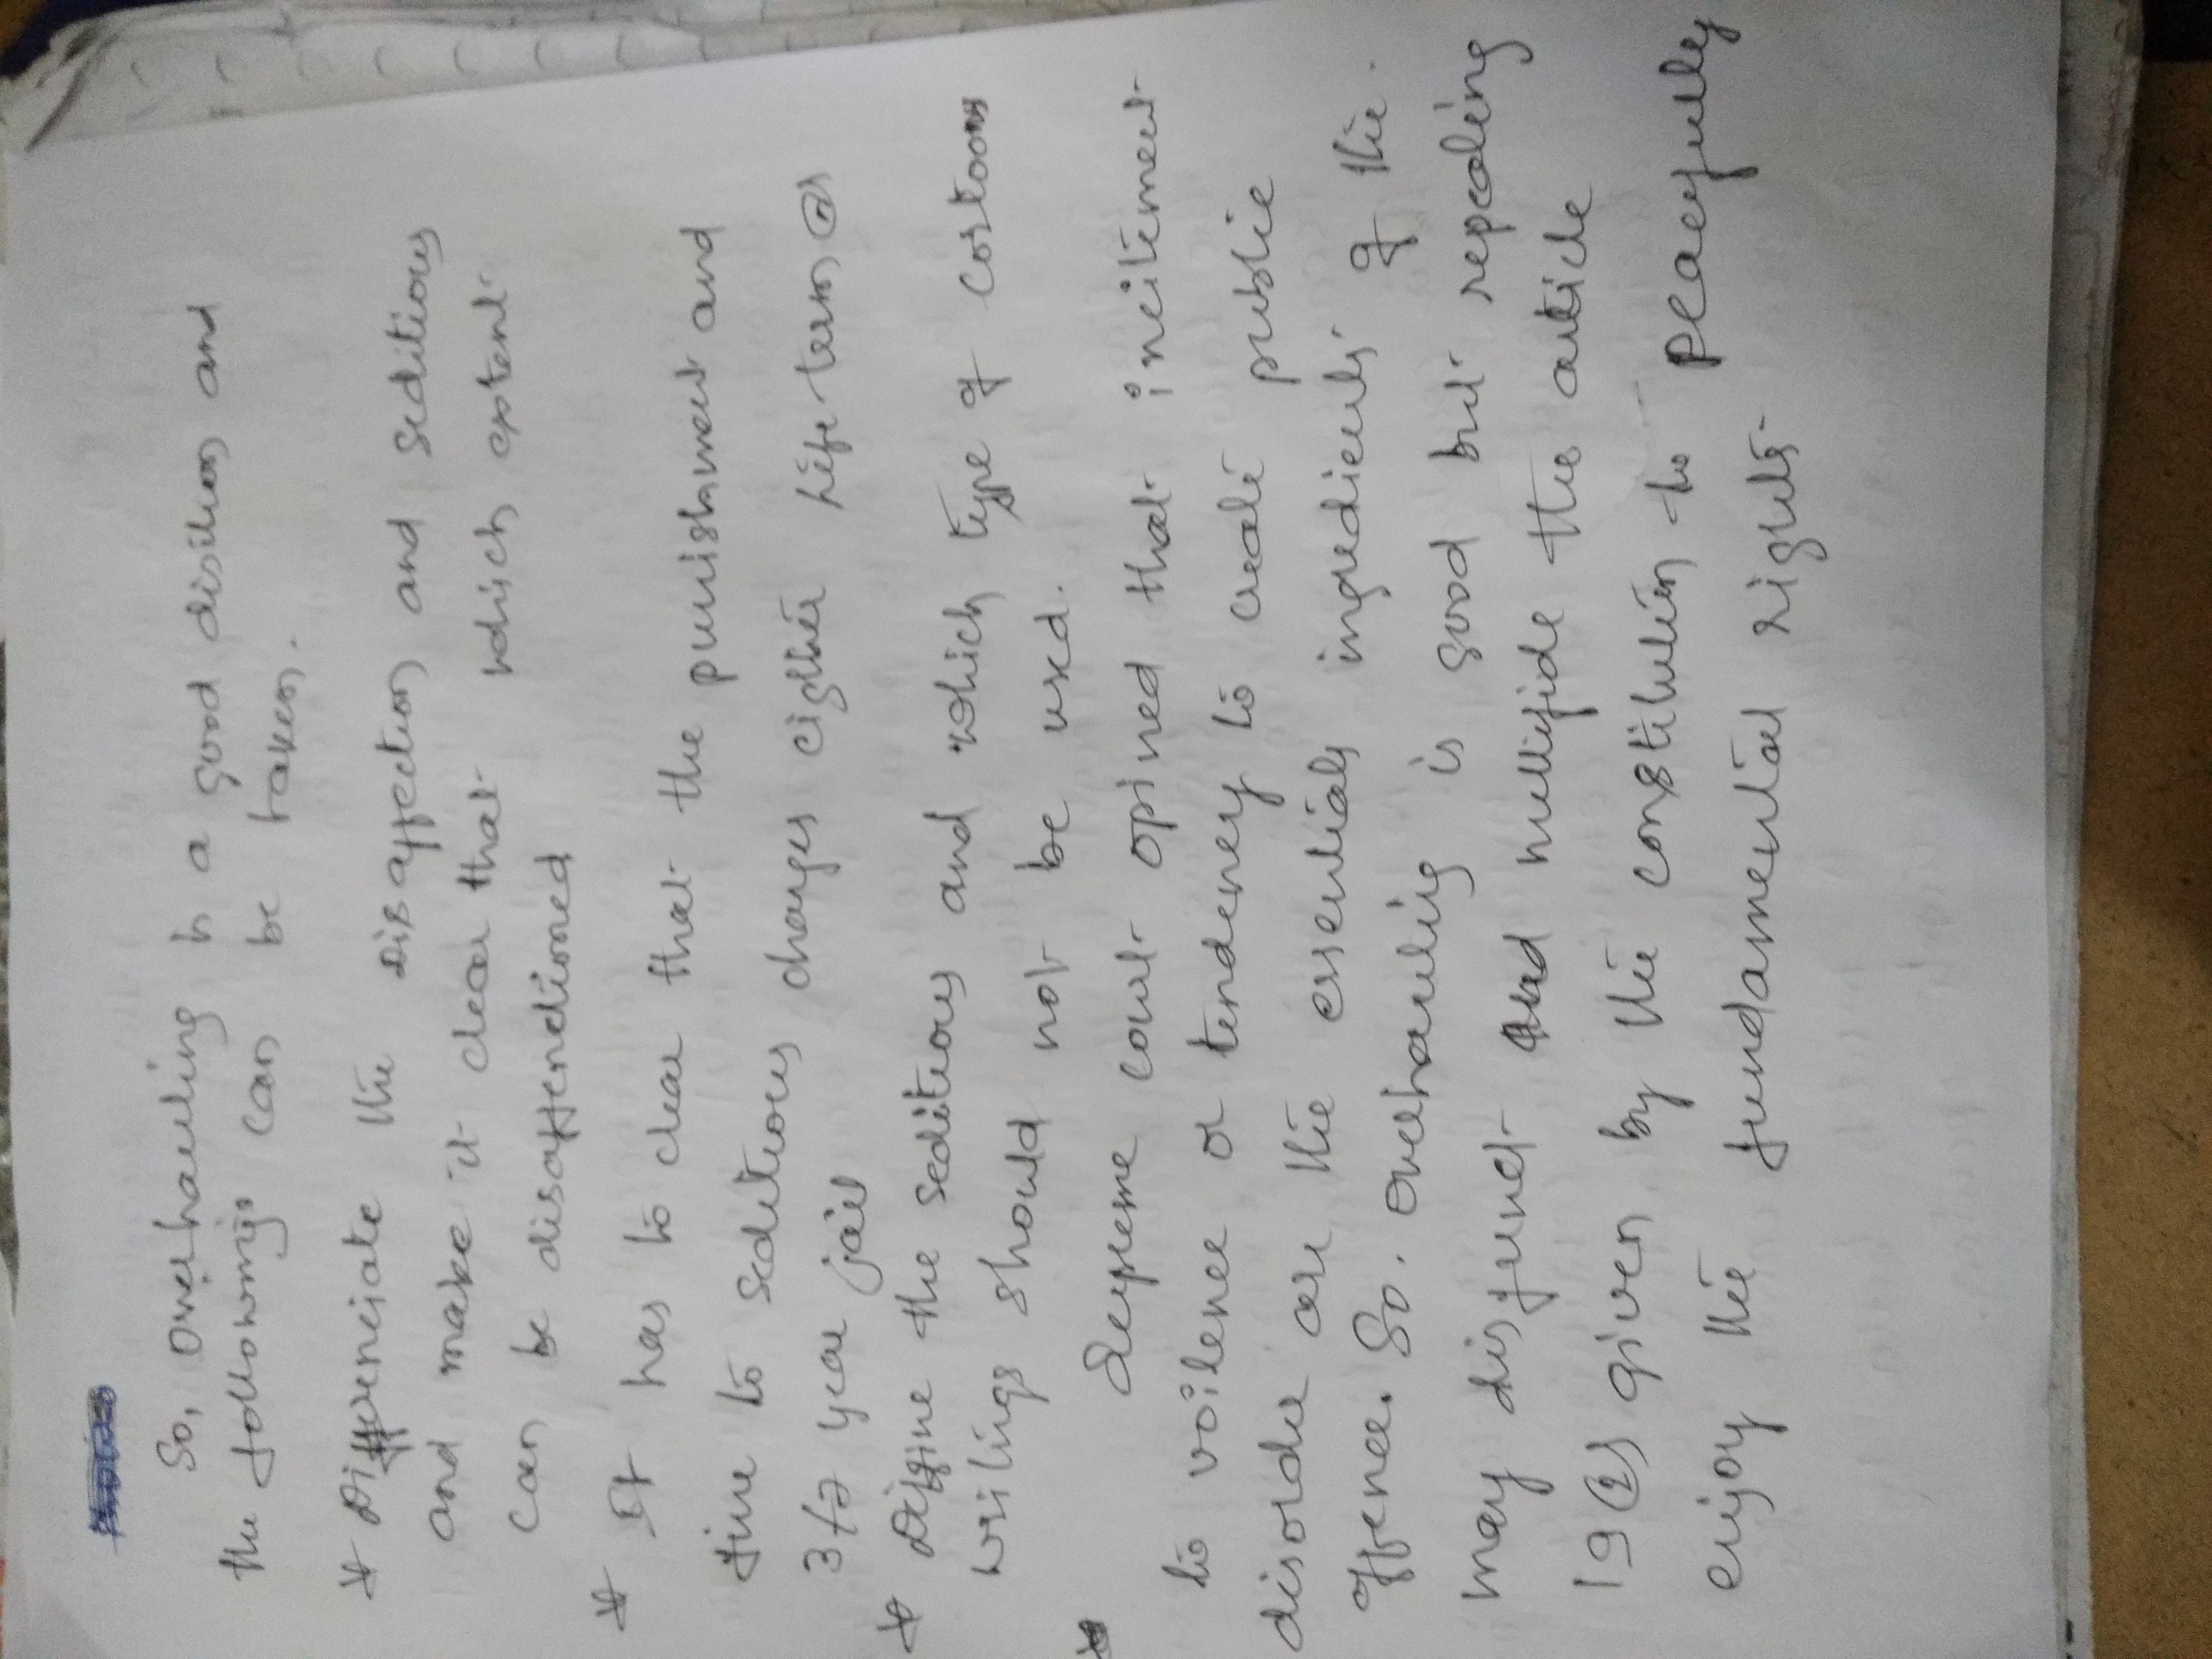 So, overhauling is a good disition and
the followings can be taken.
* Differenciate the Disaffection and seditious
and make it clear that which extent
can be disaffenditioned
* It has to clear that the punishment and
fine to seditious charges eigther life-term or
3 to 7 year jail
* Diffine the seditious and which type of cortoons
writings should not be used.
Supreme court opined that incitement
to voilence or tendency to create public
disorder are the essentials ingredients of the
offence. So. overhauling is good but repealing
may disfunct and nullifide the article
19(2) given by the constitution to peacefully
enjoy the fundamental rights.